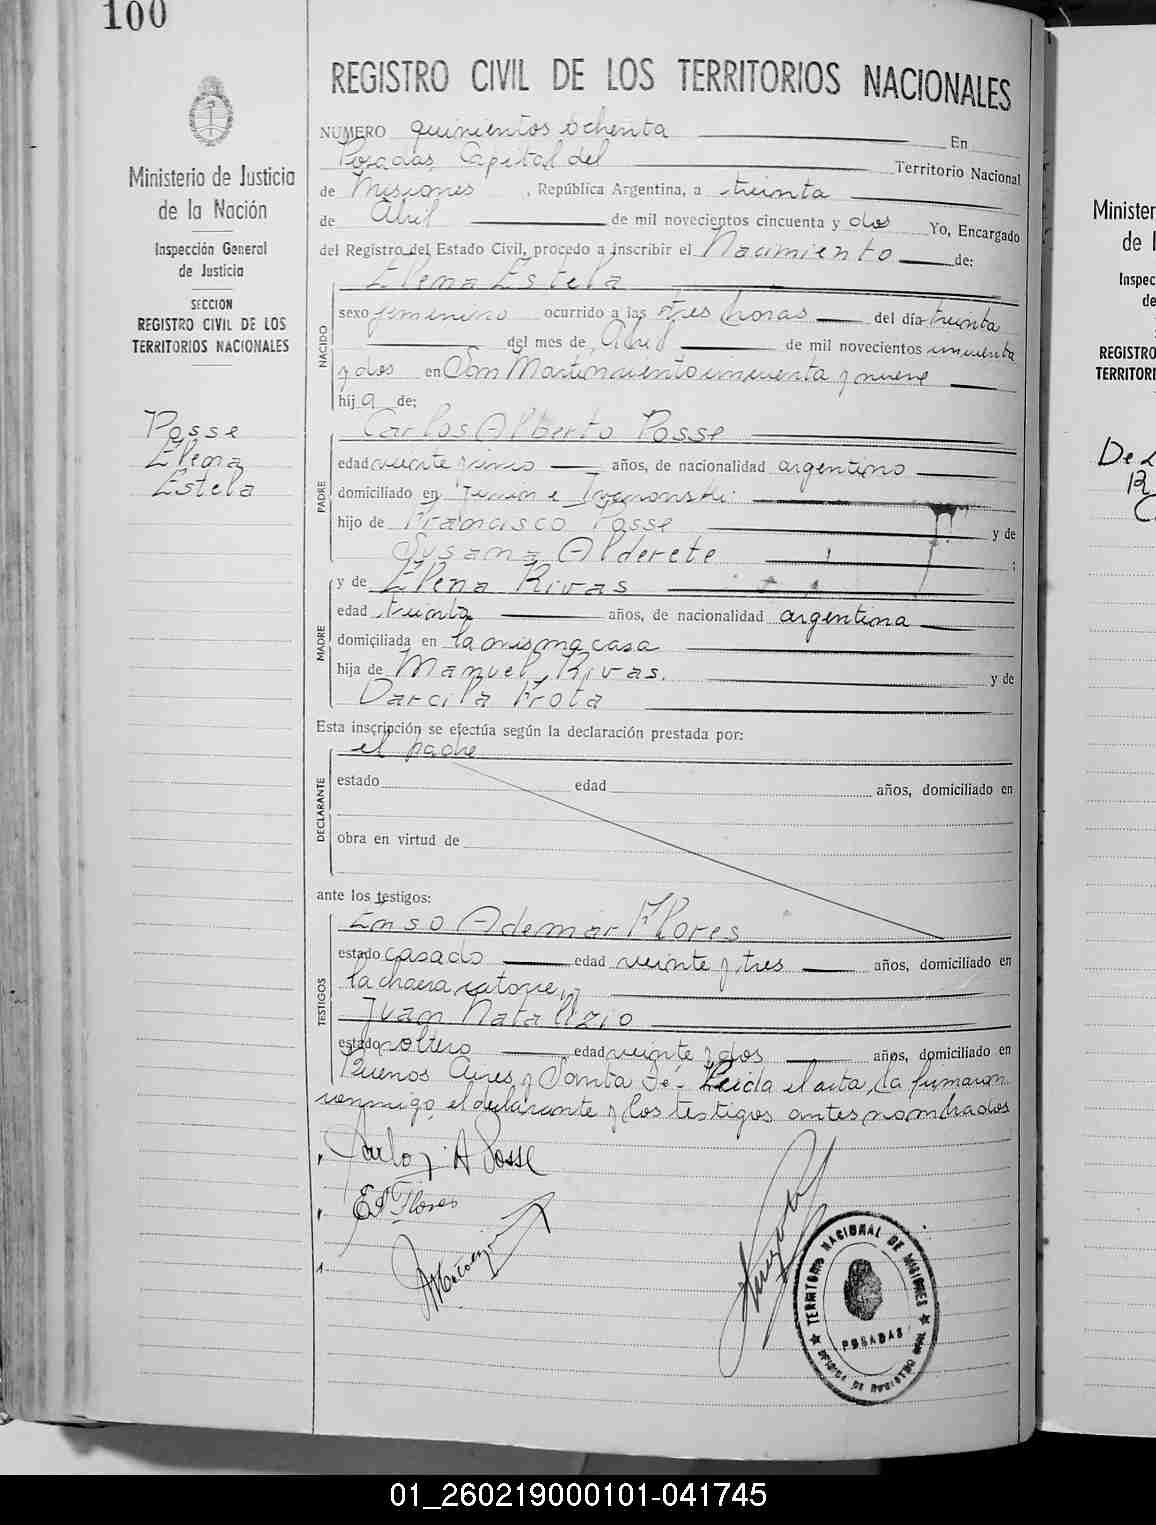 100
Ministerio de Justicia
de la Nación
Inspección General
de Justicia
SECCION
REGISTRO CIVIL DE LOS
TERRITORIOS NACIONALES
Posse
Elena
Estela
REGISTRO CIVIL DE LOS TERRITORIOS NACIONALES
NUMERO quinientos ochenta En
Posadas, Capital del Territorio Nacional
de Misiones, República Argentina, a treinta
de Abril de mil novecientos cincuenta y dos Yo, Encargado
del Registro del Estado Civil, procedo a inscribir el Nacimiento de:
NACIDO
Elena Estela
sexo femenino ocurrido a las tres horas del día treinta
del mes de Abril de mil novecientos cincuenta
y dos en San Martin ciento cincuenta y nueve
hija de:
PADRE
Carlos Alberto Posse
edad veinte y cinco años, de nacionalidad argentino
domiciliado en Junin e
hijo de Francisco Posse y de
Susana Alderete ;
MADRE
y de Elena Rivas
edad treinta años, de nacionalidad argentina
domiciliada en la misma casa
hija de Manuel Rivas. y de
Darcila Frota
Esta inscripción se efectúa según la declaración prestada por:
DECLARANTE
el padre
estado edad años, domiciliado en
obra en virtud de
ante los testigos:
TESTIGOS
Enso Ademar Flores
estado casado edad veinte y tres años, domiciliado en
la chacra catorce, y
Juan Natalizio
estado soltero edad veinte y dos años, domiciliado en
Buenos Aires y Santa Fé. Leida el acta, la firmaron
conmigo, el declarante y los testigos antes nombrados
Carlos A Posse
EA Flores
TERRITORIO NACIONAL DE MISIONES
POSADAS
OFICINA DE REGISTRO CIVIL
Minister
de l
Inspec
de
REGISTRO
TERRITORI
01_260219000101-041745